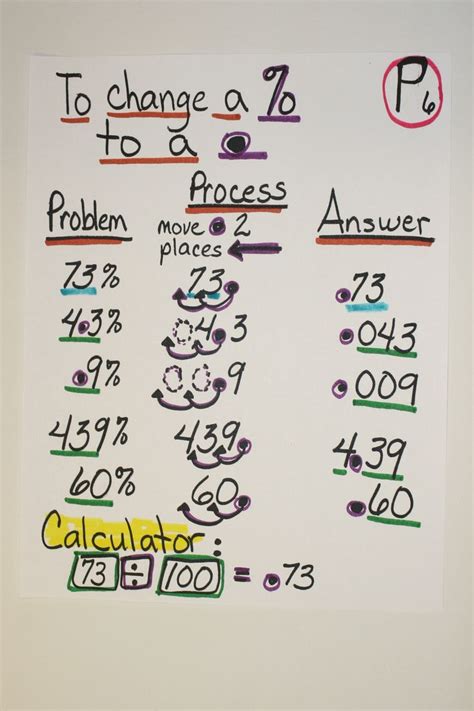 To change a %
to a .
P6
Problem
Process
move . 2
places ←
Answer
73%
73.
.73
4.3%
04.3
.043
.9%
00.9
.009
439%
439.
4.39
60%
60.
.60
Calculator:
73 ÷ 100 = .73